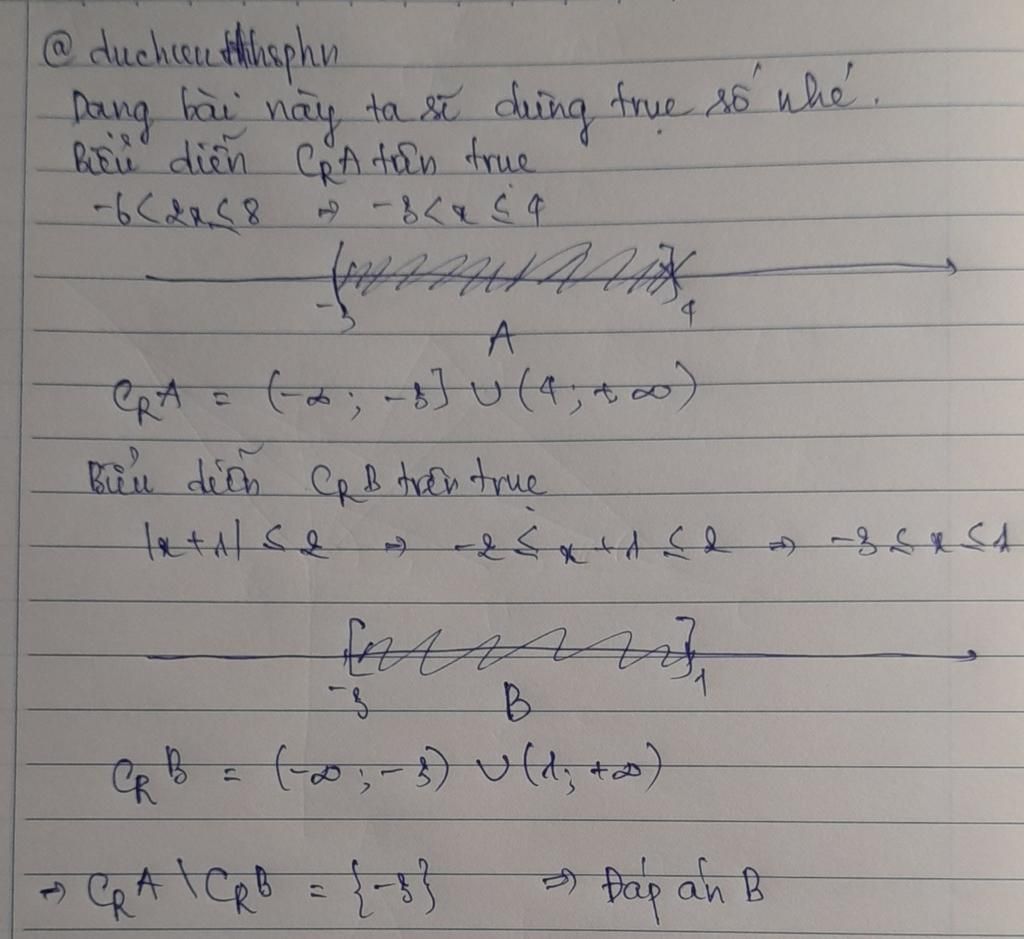 @ duchieu hhsphn
Dạng bài này ta sẽ dùng trục số nhé.
Biểu diễn CRA trên trục
-6<2x≤8 ⇒ -3<x≤4
-3 4
A
CRA = (-∞; -3] ∪ (4; +∞)
Biểu diễn CRB trên trục
|x+1| ≤ 2 ⇒ -2 ≤ x+1 ≤ 2 ⇒ -3 ≤ x ≤ 1
-3 1
B
CRB = (-∞; -3) ∪ (1; +∞)
⇒ CRA \ CRB = {-3} ⇒ Đáp án B